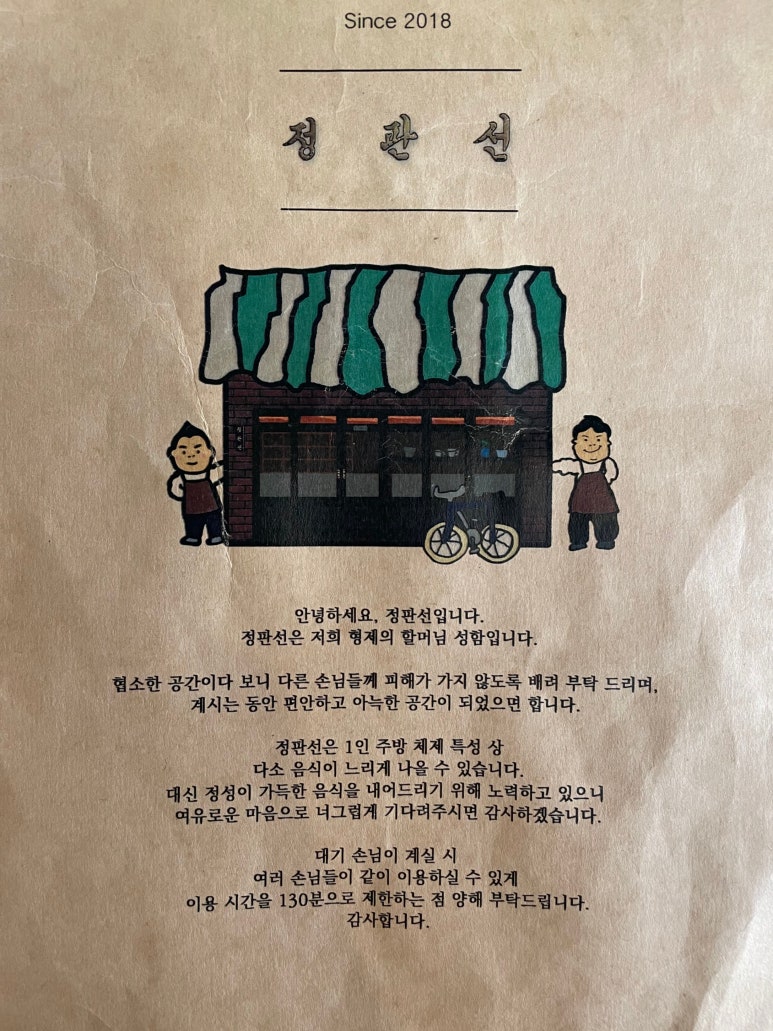 Since 2018
정 판 선
안녕하세요, 정판선입니다.
정판선은 저희 형제의 할머님 성함입니다.
협소한 공간이다 보니 다른 손님들께 피해가 가지 않도록 배려 부탁 드리며,
계시는 동안 편안하고 아늑한 공간이 되었으면 합니다.
정판선은 1인 주방 체제 특성 상
다소 음식이 느리게 나올 수 있습니다.
대신 정성이 가득한 음식을 내어드리기 위해 노력하고 있으니
여유로운 마음으로 너그럽게 기다려주시면 감사하겠습니다.
대기 손님이 계실 시
여러 손님들이 같이 이용하실 수 있게
이용 시간을 130분으로 제한하는 점 양해 부탁드립니다.
감사합니다.